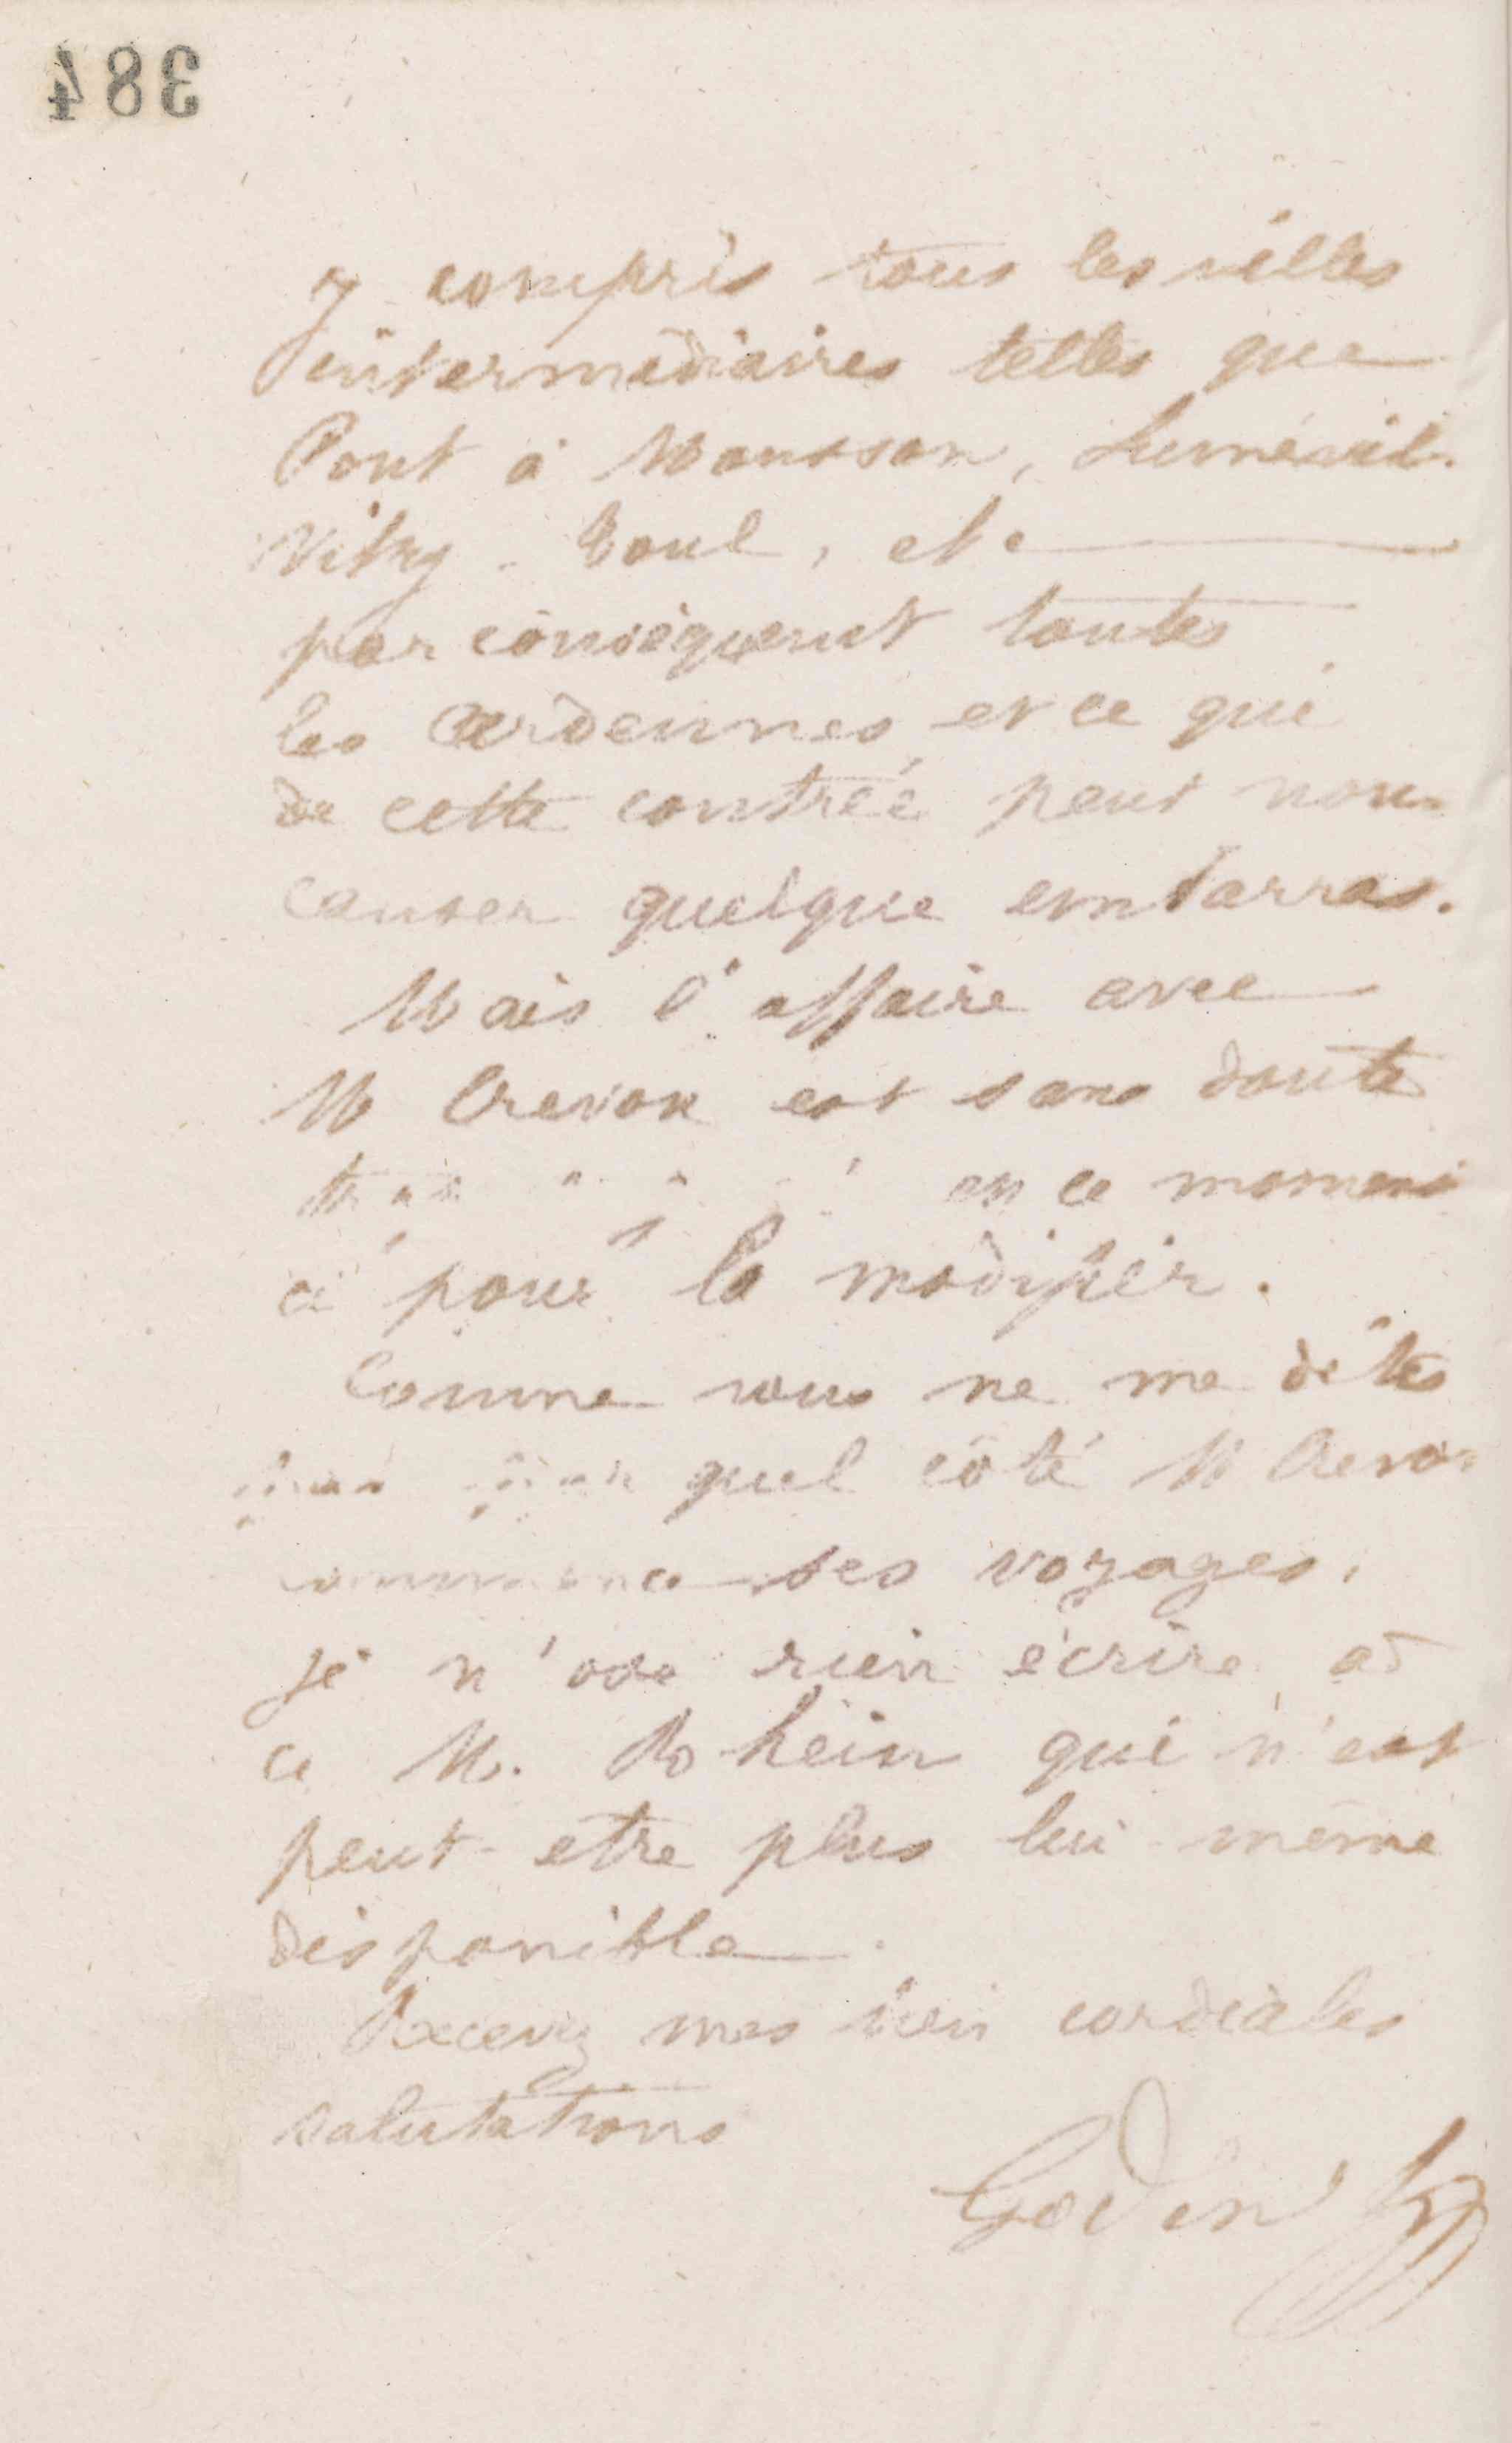 384
y compris tous les villes
intermédiaires telles que
Pont à Mousson, Lunévil.
Vitry. Toul, etc
par conséquent toutes
les Ardennes et ce qui
de cette contrée peut nous
causer quelque embarras.
Mais l'affaire avec
M Crevon est sans doute
en ce moment
ci pour la modifier.
Comme vous ne me dites
pas par quel côté M Crevon
commence ses voyages,
je n'ose rien écrire à
ce M. Rohein qui n'est
peut-etre plus lui-même
disponible.
Recevez mes bien cordiales
salutations
Godin